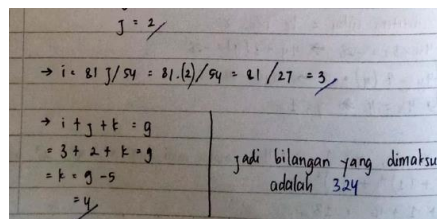 J = 2
→ i = 81 J/54 = 81.(2)/54 = 81/27 = 3
→ i + J + k = 9
= 3 + 2 + k = 9
= k = 9 - 5
= 4
jadi bilangan yang dimaksu
adalah 324